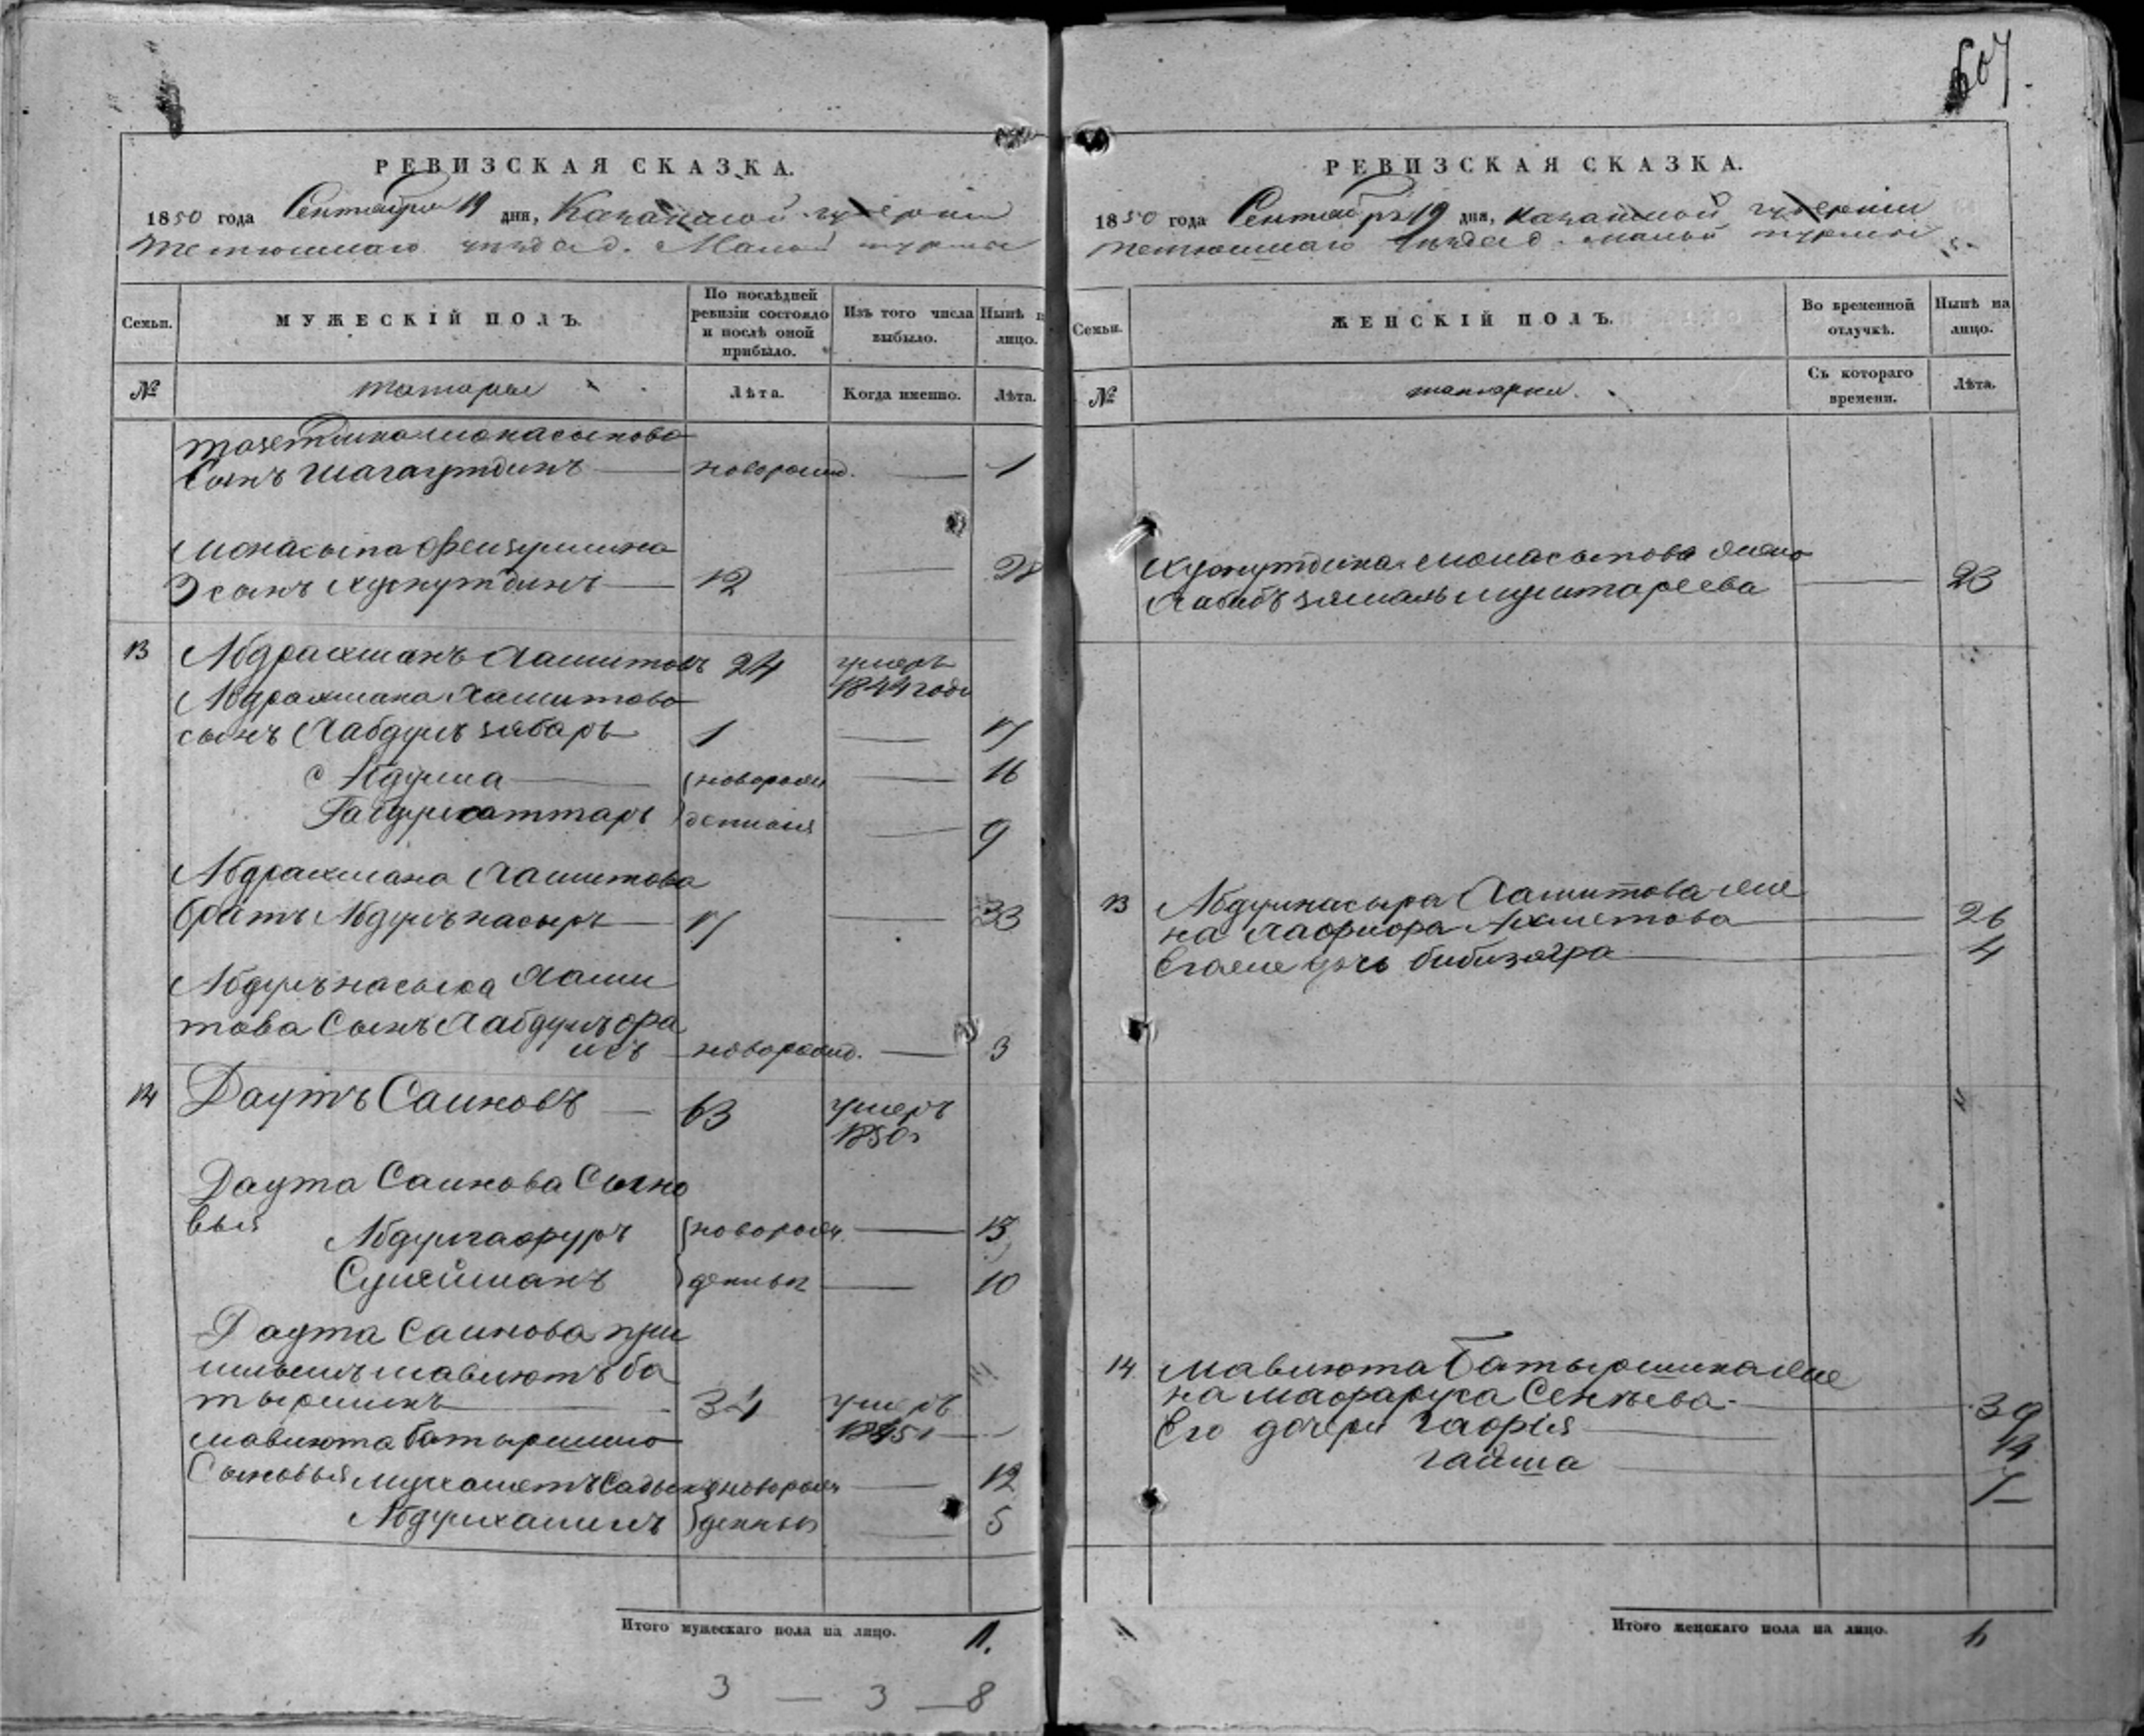 607.
РЕВИЗСКАЯ СКАЗКА.
1850 года Сентября 19 дня, Казанской губерніи
Тетюшскаго уѣзда д. Малой
Семьи.
МУЖЕСКІЙ ПОЛЪ.
По послѣдней ревизіи состояло и послѣ оной прибыло.
Изъ того числа выбыло.
Нынѣ на лицо.
№
татары
Лѣта.
Когда именно.
Лѣта.
монасыпова
Сынъ Шагаутдинъ новорожд. 1
Монасыпа
2 сынъ Хуснутдинъ 12 28
13 Абдрахманъ Хамитовъ 24 умеръ
Абдрахмана Хамитова 1844 года
сынъ Хабдулъ зябаръ 1 17
Абдулла новорож 16
Габдулсаттаръ денныя 9
Абдрахмана Хамитова
братъ Абдулънасыръ 17 33
Абдулънасыра Хами
това Сынъ Хабдулъ фа
исъ новорожд. 3
14 Даутъ Саиновъ 63 умеръ
1850
Даута Саинова Сыно
вья Абдулгафуръ новорож 13
Сулейманъ денныя 10
Даута Саинова
ба
тыршинъ 34 умеръ
1845
Сыновья Мухаметъ Садыкъ новорож 12
Абдулхалилъ денныя 5
Итого мужескаго пола на лицо. 11.
3 — 3 — 8
РЕВИЗСКАЯ СКАЗКА.
1850 года Сентября 19 дня, Казанской губерніи
Тетюшскаго уѣзда д. Малой
Семьи.
ЖЕНСКІЙ ПОЛЪ.
Во временной отлучкѣ.
Нынѣ на лицо.
№
татарки.
Съ котораго времени.
Лѣта.
Хуснутдина Монасыпова жена
Хабибъ зямаль Муштареева 23
13 Абдулнасыра Хамитова же
на Ахметова 26
Его же дочь бибизягра 4
14 Батыршина же
на Сентьева 39
Его дочери Гафрія 14
гайша 7
Итого женскаго пола на лицо. 6